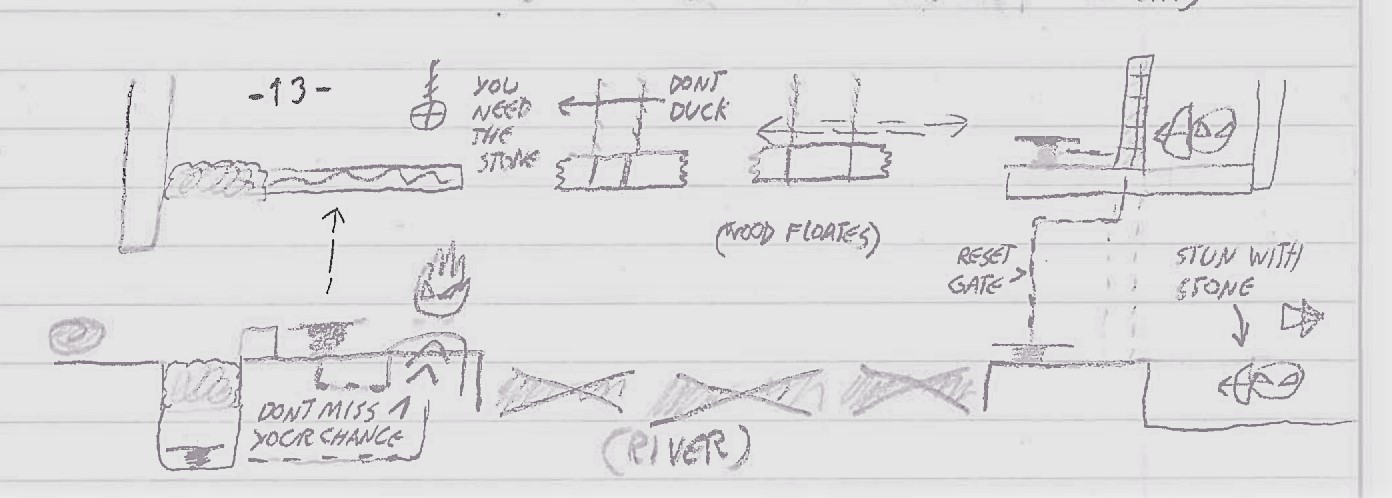 -13-
YOU
NEED
THE
STONE
DONT
DUCK
(WOOD FLOATES)
RESET
GATE
STUN WITH
STONE
DONT MISS
YOUR CHANCE
(RIVER)